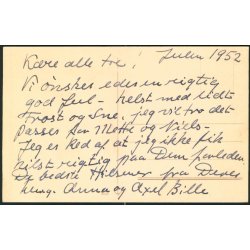 Kære alle tre! Julen 1952
Vi ønsker eder en rigtig
god Jul - helst med lidt
Frost og Sne, jeg vil tro det
passer for Mette og Niels -
Jeg er ked af at jeg ikke fik
hilst rigtig paa Dem forleden
De bedste Hilsener fra Deres
heng. Anna og Axel Bille